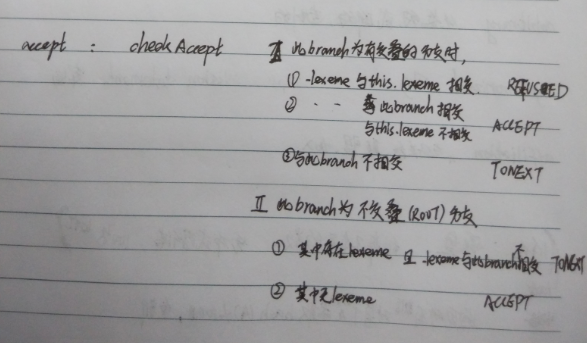 accept : checkAccept I 此branch为有交叠的分支时,
① -lexeme与this.lexeme 相交. REFUSED
② - - 与此branch相交
与this.lexeme 不相交 ACCEPT
③与此branch不相交 TONEXT
II 此branch为不交叠(ROOT)分支
① 其中存在lexeme 且 -lexeme与此branch不相交 TONEXT
② 其中无lexeme ACCEPT